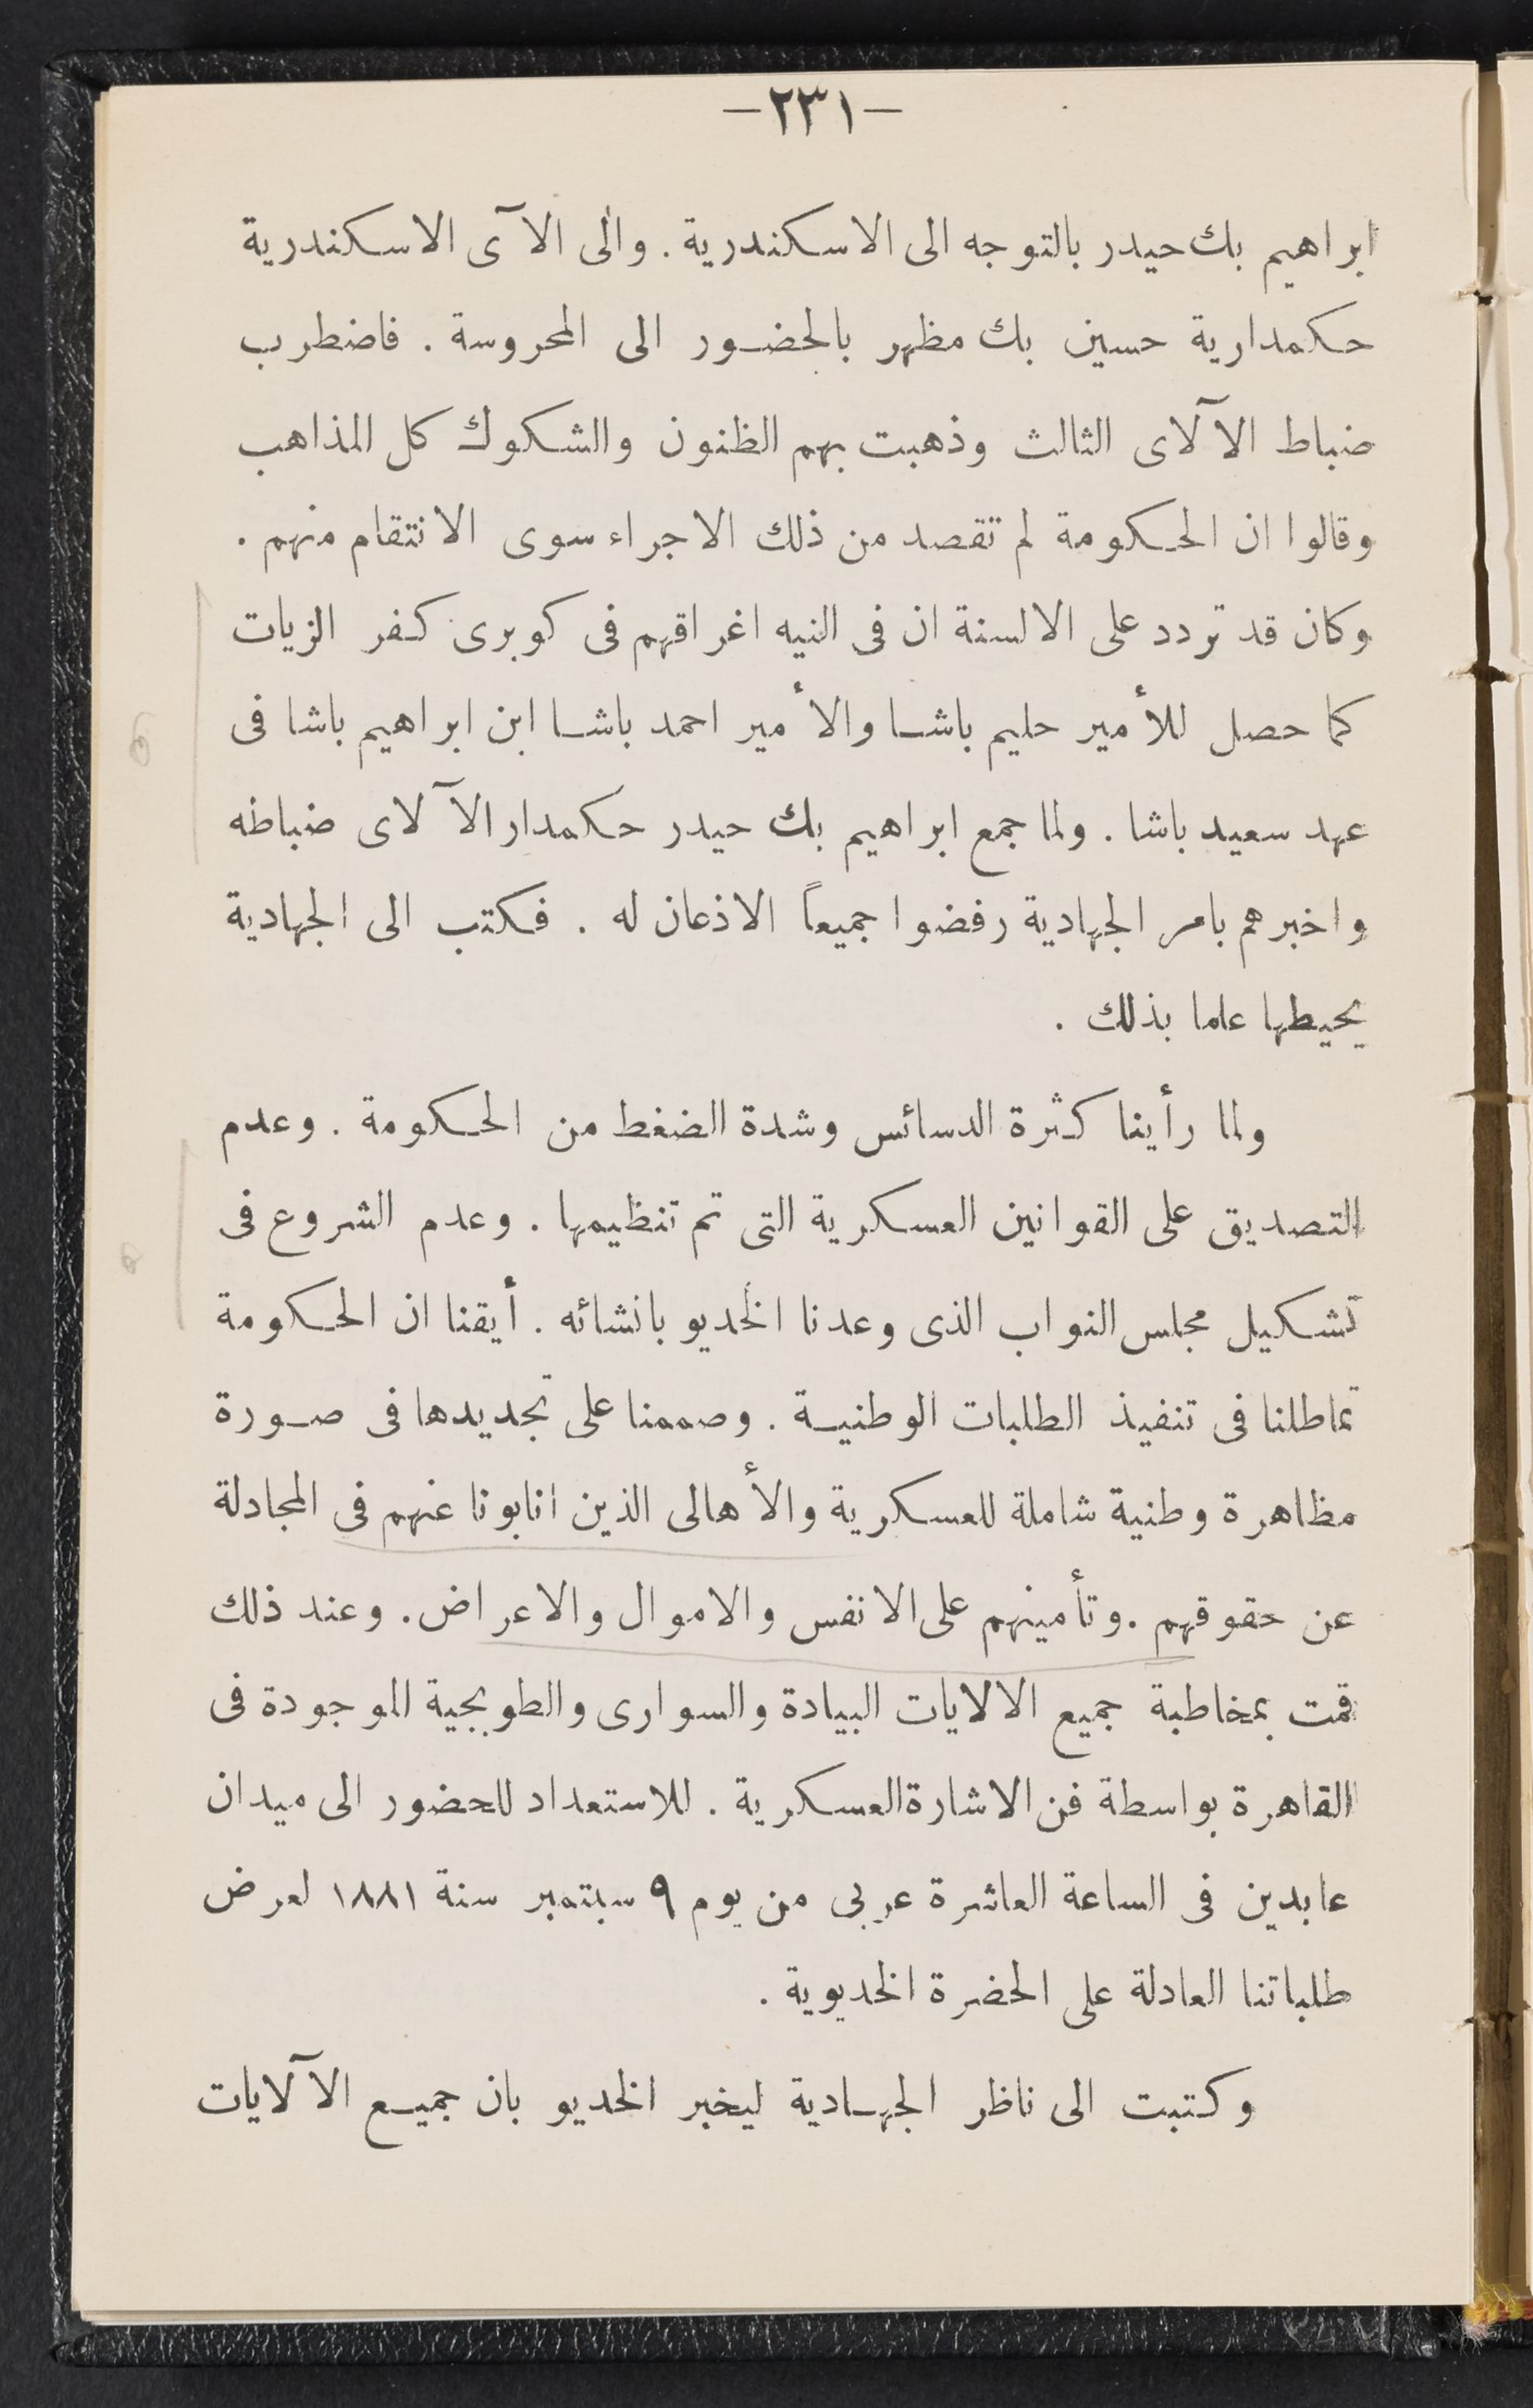 —٢٣١—
ابراهيم بك حيدر بالتوجه الى الاسكندرية . والى الآى الاسكندرية
حكمدارية حسين بك مظهر بالحضور الى المحروسة . فاضطرب
ضباط الآلاى الثالث وذهبت بهم الظنون والشكوك كل المذاهب
وقالوا ان الحكومة لم تقصد من ذلك الاجراء سوى الانتقام منهم .
وكان قد تردد على الالسنة ان فى النيه اغراقهم فى كوبرى كفر الزيات
كما حصل للأمير حليم باشا والأمير احمد باشا ابن ابراهيم باشا فى
عهد سعيد باشا . ولما جمع ابراهيم بك حيدر حكمدار الآلاى ضباطه
واخبرهم بامر الجهادية رفضوا جميعاً الاذعان له . فكتب الى الجهادية
يحيطها علما بذلك .
ولما رأينا كثرة الدسائس وشدة الضغط من الحكومة . وعدم
التصديق على القوانين العسكرية التى تم تنظيمها . وعدم الشروع فى
تشكيل مجلس النواب الذى وعدنا الخديو بانشائه . أيقنا ان الحكومة
تماطلنا فى تنفيذ الطلبات الوطنية . وصممنا على تجديدها فى صورة
مظاهرة وطنية شاملة للعسكرية والأهالى الذين انابونا عنهم فى المجادلة
عن حقوقهم . وتأمينهم على الانفس والاموال والاعراض . وعند ذلك
قمت بمخاطبة جميع الالايات البيادة والسوارى والطوبجية الموجودة فى
القاهرة بواسطة فن الاشارة العسكرية . للاستعداد للحضور الى ميدان
عابدين فى الساعة العاشرة عربى من يوم ٩ سبتمبر سنة ١٨٨١ لعرض
طلباتنا العادلة على الحضرة الخديوية .
وكتبت الى ناظر الجهادية ليخبر الخديو بان جميع الآلايات